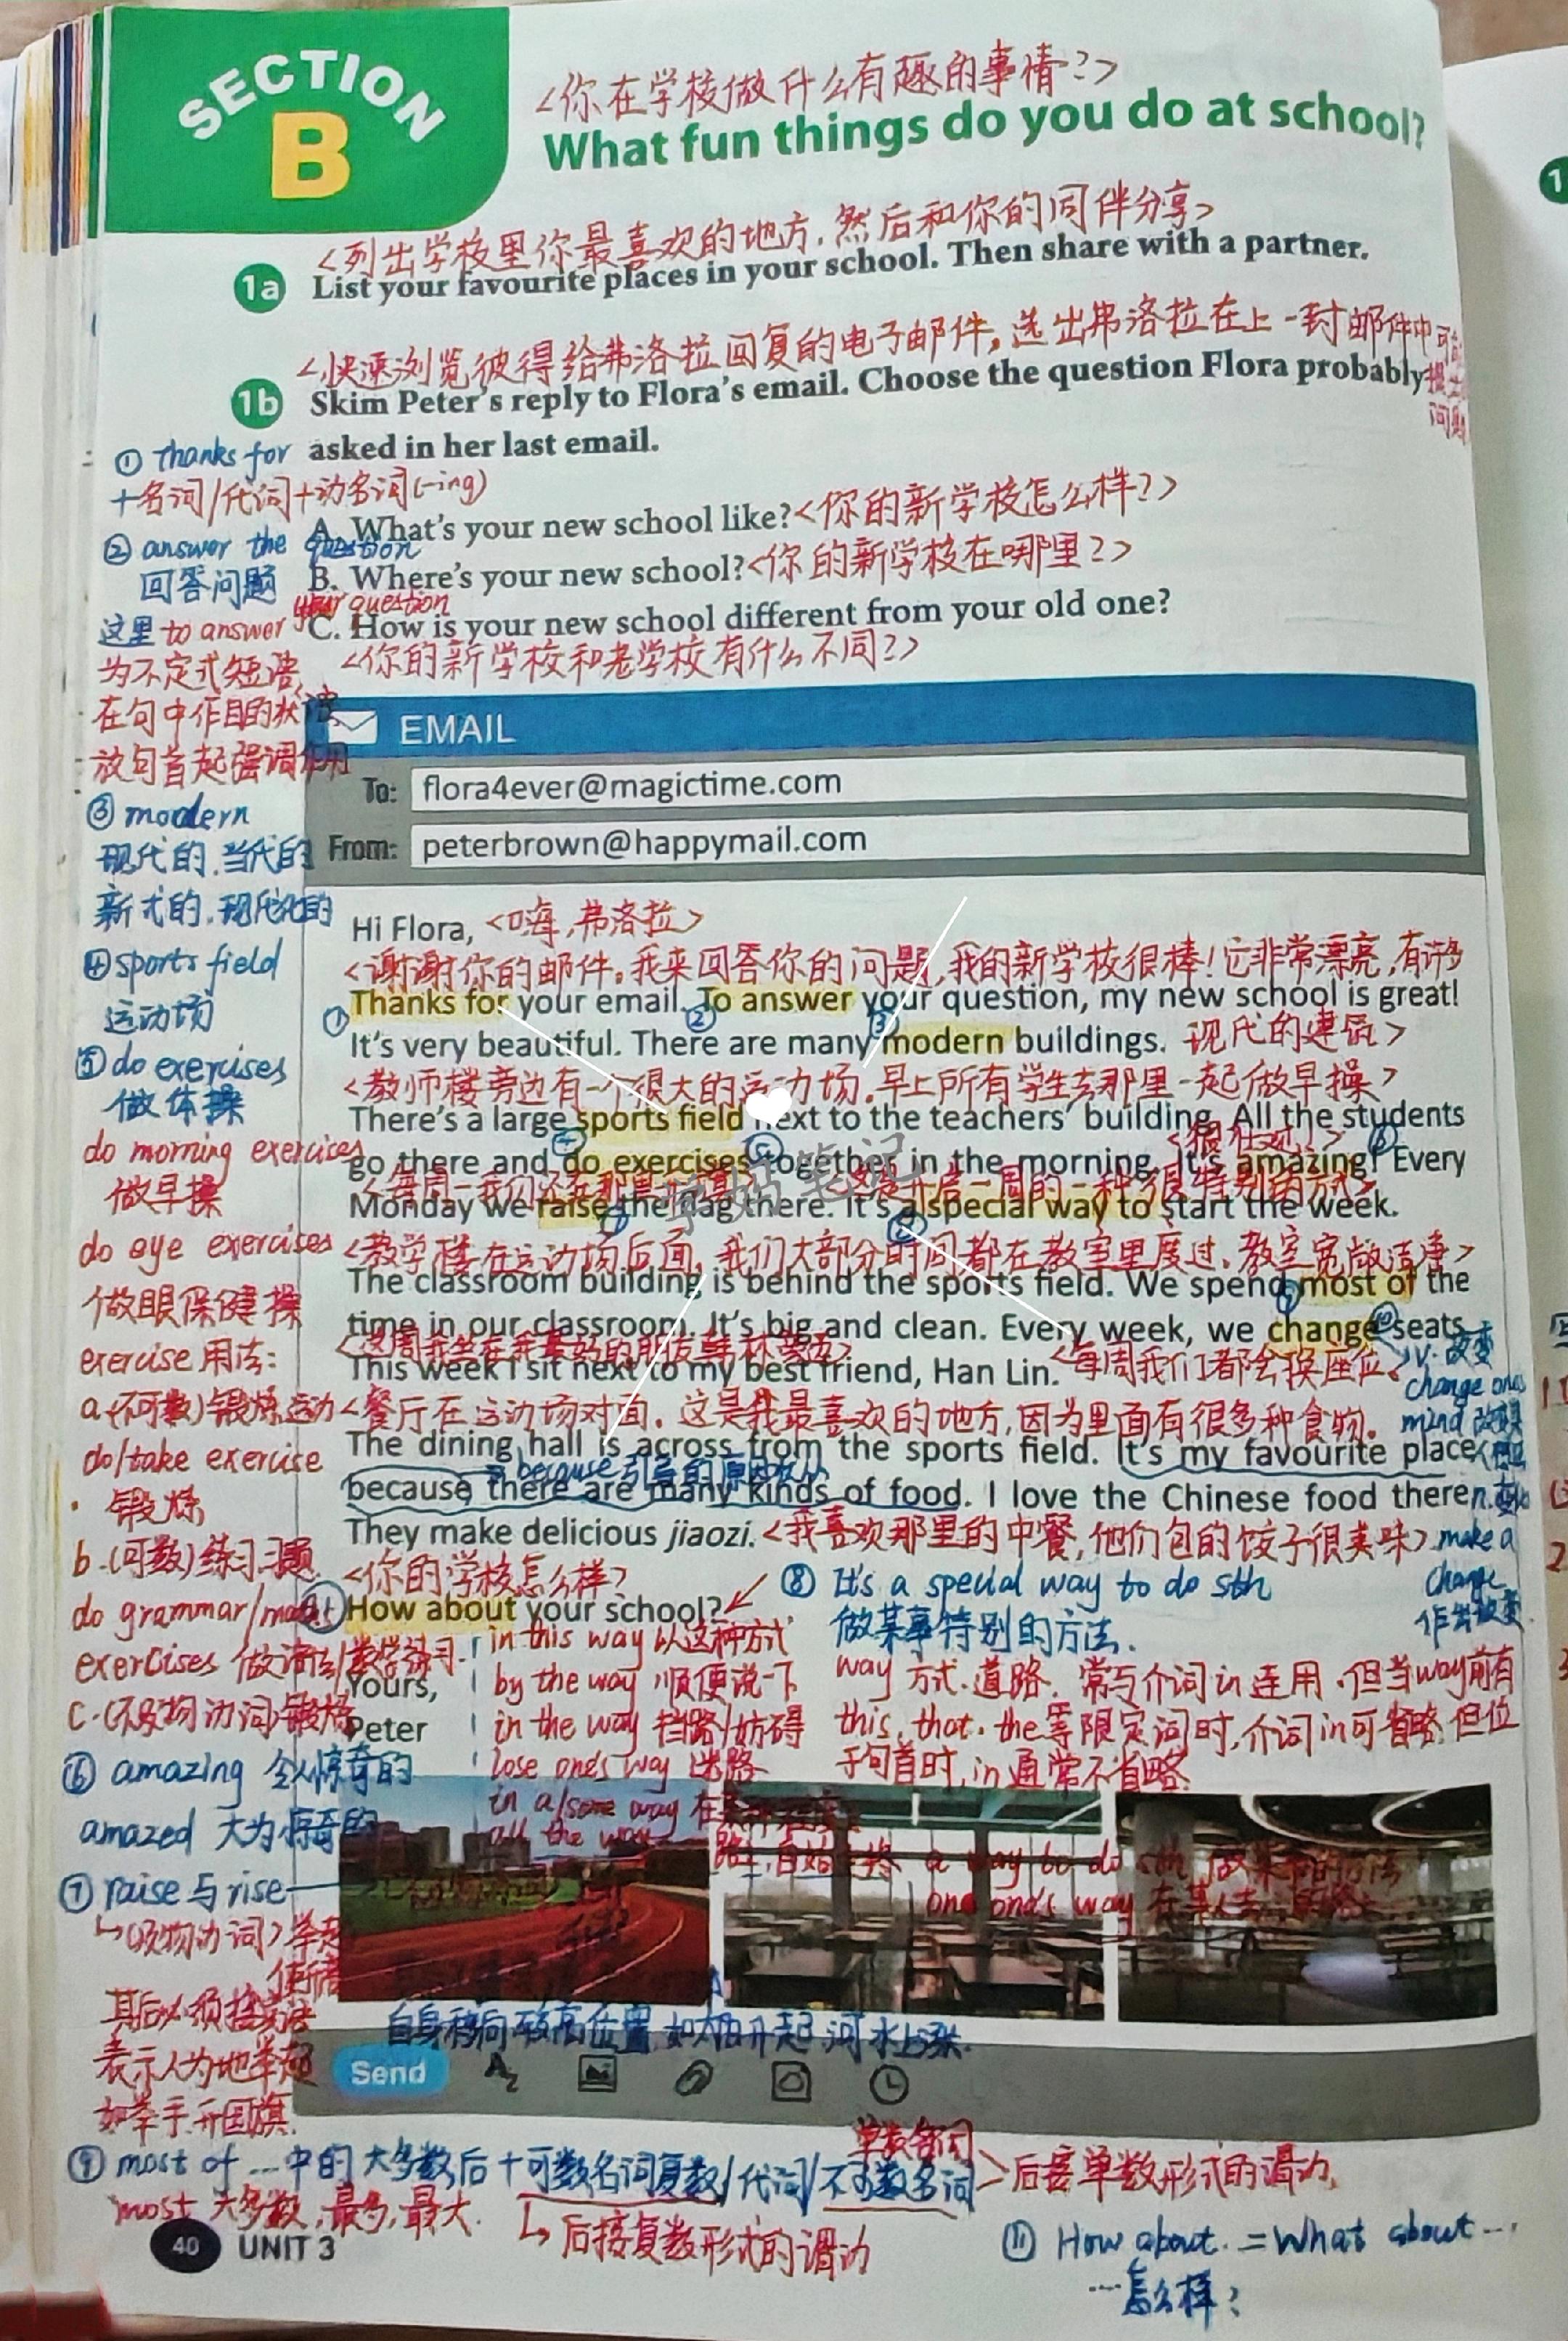 SECTION
B
<你在学校做什么有趣的事情?>
What fun things do you do at school?
<列出学校里你最喜欢的地方,然后和你的同伴分享>
1a List your favourite places in your school. Then share with a partner.
<快速浏览彼得给弗洛拉回复的电子邮件,选出弗洛拉在上一封邮件中可能
提出
问题
1b Skim Peter's reply to Flora's email. Choose the question Flora probably
asked in her last email.
A. What's your new school like? <你的新学校怎么样?>
B. Where's your new school? <你的新学校在哪里?>
C. How is your new school different from your old one?
<你的新学校和老学校有什么不同?>
① thanks for
+名词/代词+动名词(-ing)
② answer the question
回答问题
your question
这里 to answer
为不定式短语
在句中作目的状语
放句首起强调作用
③ modern
现代的,当代的
新式的,现代化的
④ sports field
运动场
⑤ do exercises
做体操
do morning exercises
做早操
do eye exercises
做眼保健操
exercise 用法:
a.(不可数)锻炼,运动
do/take exercise
锻炼
b.(可数)练习,习题
do grammar/
exercises 做语法/数学练习
c.(不及物动词)锻炼
⑥ amazing 令人惊奇的
amazed 大为惊奇的
⑦ raise 与 rise
(及物动词)举起
其后必须接宾语
表示人为地举起
如举手,升国旗.
EMAIL
To: flora4ever@magictime.com
From: peterbrown@happymail.com
Hi Flora, <嗨,弗洛拉>
<谢谢你的邮件。我来回答你的问题,我的新学校很棒!它非常漂亮,有许多
① Thanks for your email. To answer your question, my new school is great!
② ③
It's very beautiful. There are many modern buildings. 现代的建筑>
<教师楼旁边有一个很大的运动场.早上所有学生去那里一起做早操>
There's a large sports field next to the teachers' building. All the students
go there and do exercises together in the morning. It's amazing! Every
Monday we raise the flag there. It's a special way to start the week.
学妈笔记
<教学楼在运动场后面,我们大部分时间都在教室里度过,教室宽敞洁净>
The classroom building is behind the sports field. We spend most of the
time in our classroom. It's big and clean. Every week, we change seats.
<这周我坐在我最好的朋友韩林旁边>
This week I sit next to my best friend, Han Lin. <每周我们都会换座位>
v. 改变
change one's
mind 改变
<餐厅在运动场对面。这是我最喜欢的地方,因为里面有很多种食物。
The dining hall is across from the sports field. It's my favourite place
because 引导的原因状从
because there are many kinds of food. I love the Chinese food there.
They make delicious jiaozi. <我喜欢那里的中餐,他们包的饺子很美味>
make a
change
作出改变
<你的学校怎么样?
How about your school?
Yours,
Peter
in this way 以这种方式
by the way 顺便说一下
in the way 挡路/妨碍
lose one's way 迷路
in a/some way
all the way
⑧ It's a special way to do sth
做某事特别的方法.
way 方式.道路. 常与介词 in 连用.但当way前有
this, that, the等限定词时,介词in可省略.但位
于句首时,in通常不省略.
a way to do sth
one one's way
自身移向较高位置,如太阳升起,河水上涨.
Send
⑨ most of ...中的大多数,后+可数名词复数/代词/不可数名词
单数名词
>后接单数形式的谓动.
most 大多数,最多,最大.
↳后接复数形式的谓动
⑪ How about. = What about ...
...怎么样?
40 UNIT 3